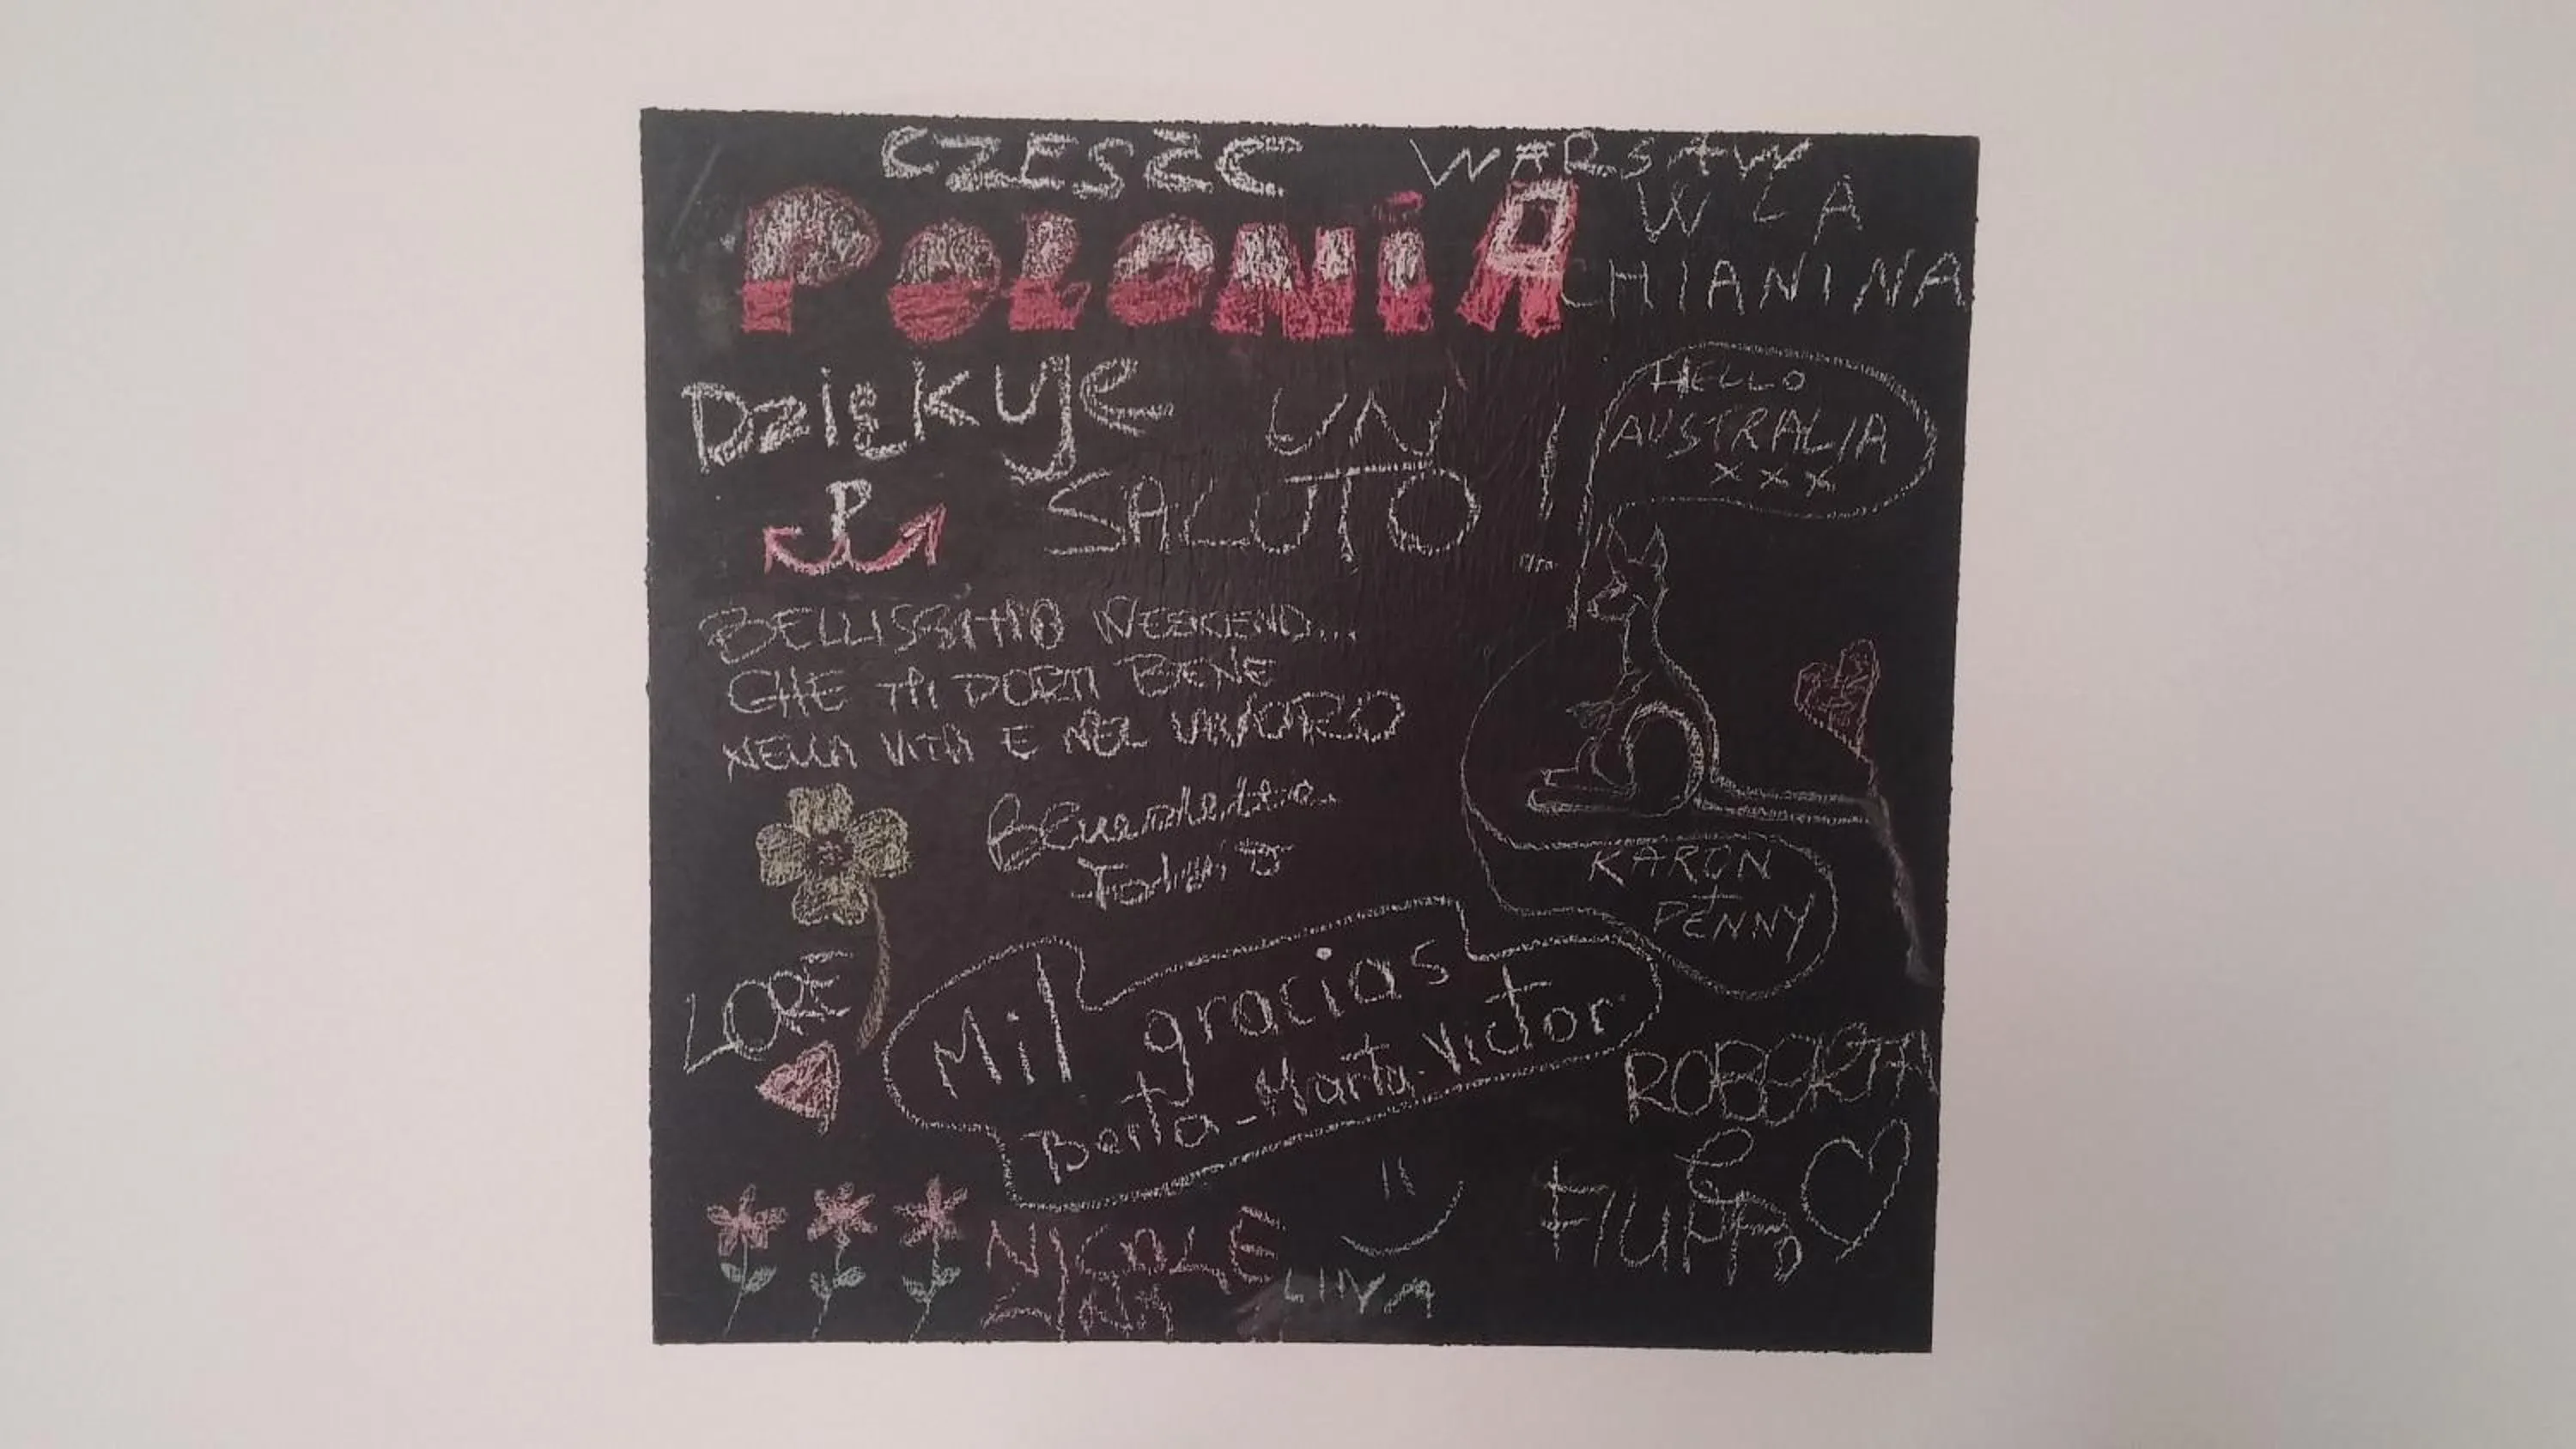 CZESZC
WARSAW
POLONIA
W LA
CHIANINA
Dziękuje
UN
SALUTO!
HELLO
AUSTRALIA
xxx
P
BELLISSIMO WEEKEND...
CHE TI PORTI BENE
NELLA VITA E NEL LAVORO
Benedetta
KARON
+
PENNY
LORE
Mil gracias
Berta-Marta-Victor
ROBERTA
E
FILIPPO
NICOLE
LINA